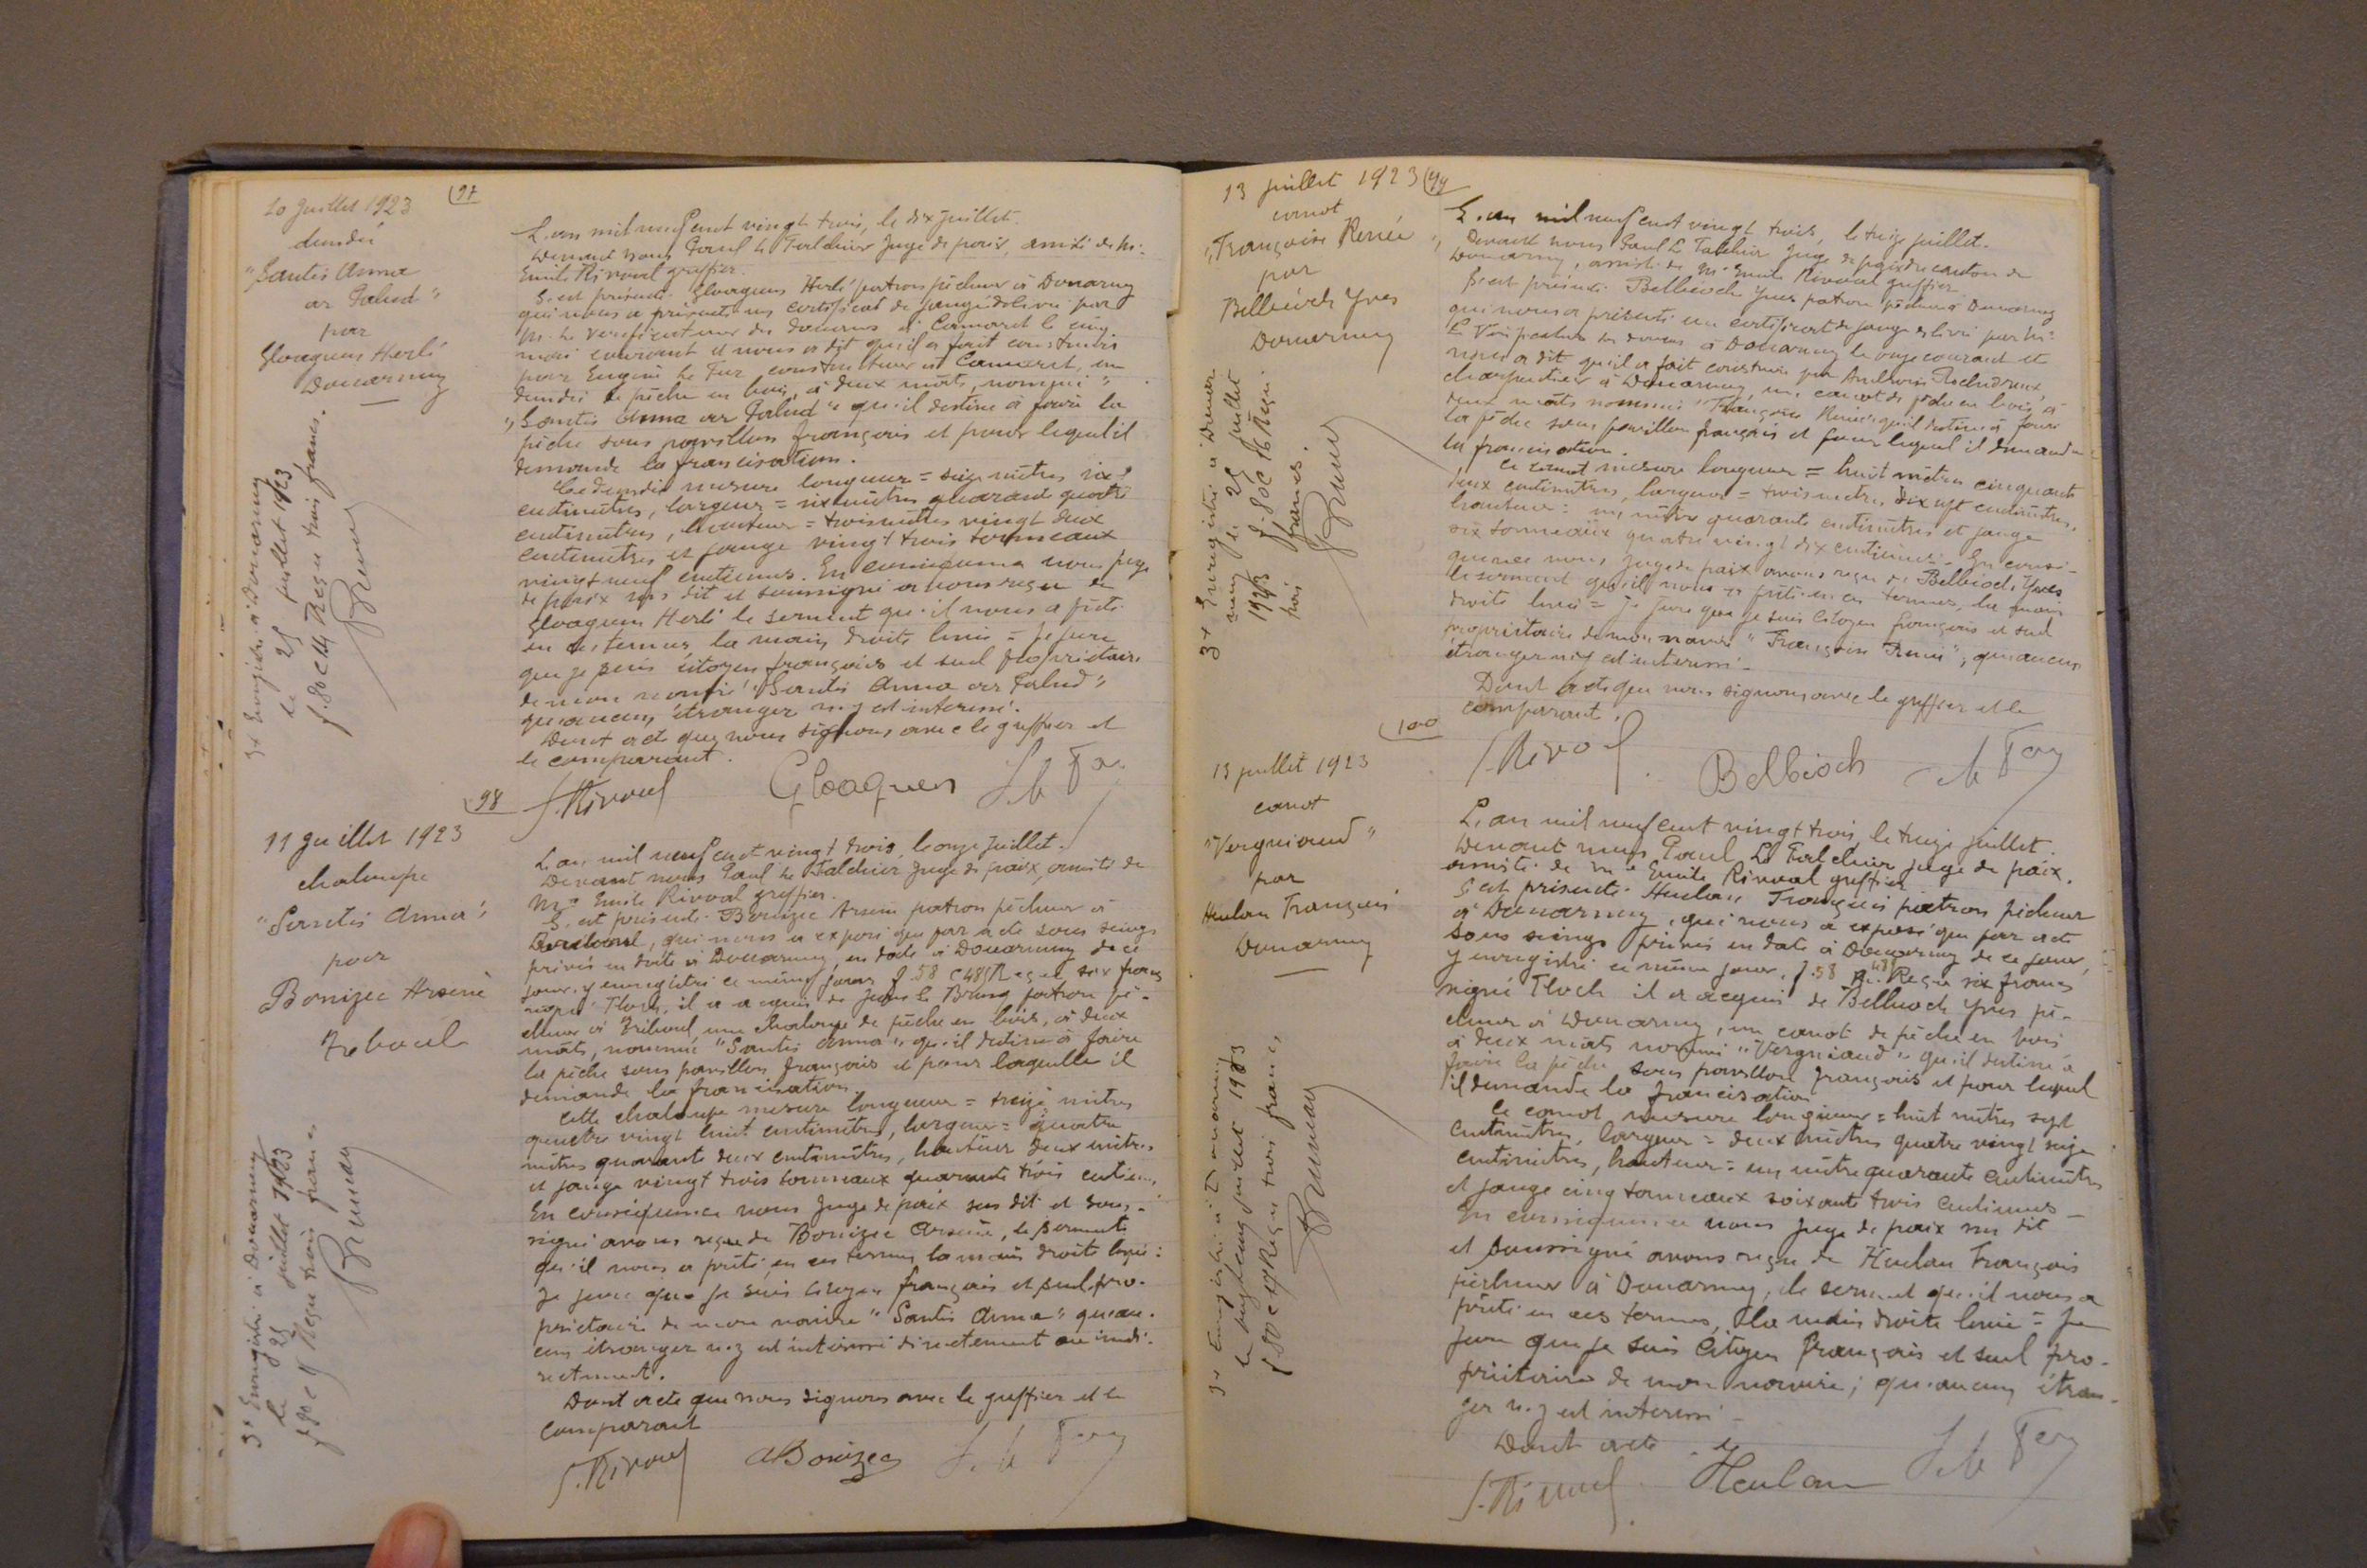 10 Juillet 1923
(97
dundée
"Santés Anna
ar Palud"
par
Gloaguen Herlé
Douarnenez
3e Enregistré à Douarnenez
le 25 juillet 1923
f. 80 c 14 Reçu trois francs.
L'an mil neuf cent vingt trois, le dix juillet.
Devant nous Paul Le Falchier Juge de paix, assisté de Me
Emile Rivoal greffier.
S'est présenté Gloaguen Herlé patron pêcheur à Douarnenez
qui nous a présenté un certificat de jauge délivré par
Mr le Vérificateur des douanes à Camaret le cinq
mai courant et nous a dit qu'il a fait construire
par Eugène Le Fur constructeur à Camaret, un
dundée de pêche en bois, à deux mâts, nommé "
"Santés Anna ar Palud" qu'il destine à faire la
pêche sous pavillon français et pour lequel il
demande la francisation.
Ce dundée mesure longueur = seize mètres six
centimètres, largeur = six mètres quarante quatre
centimètres, hauteur = trois mètres vingt deux
centimètres et jauge vingt trois tonneaux
vingt neuf centièmes. En conséquence nous juge
de paix sus dit et soussigné avons reçu de
Gloaguen Herlé le serment qu'il nous a prêté
en ces termes, la main droite levée = Je jure
que je suis citoyen français et seul propriétaire
de mon navire "Santés Anna ar Palud"
qu'aucun étranger n'y est intéressé.
Dont acte que nous signons avec le greffier et
le comparant.
E. Rivoal Gloaguen
98
11 Juillet 1923
chaloupe
"Santés Anna"
par
Bonizec Arsène
Tréboul
3e Enregistré à Douarnenez
le 25 juillet 1923
f 80 c Reçu trois francs
L'an mil neuf cent vingt trois, le onze juillet.
Devant nous Paul Le Falchier Juge de paix, assisté de
Me Emile Rivoal greffier.
S'est présenté Bonizec Arsène patron pêcheur à
Tréboul, qui nous a exposé que par acte sous seings
privés en date à Douarnenez en date à Douarnenez de ce
jour, y enregistré ce même jour f. 58 c 485 Reçu six francs
signé Tloch, il a acquis de Jean Le Brusq patron pê-
cheur à Tréboul, une chaloupe de pêche en bois, à deux
mâts, nommée "Santés Anna" qu'il destine à faire
la pêche sous pavillon français et pour laquelle il
demande la francisation.
Cette chaloupe mesure longueur = treize mètres
quatre vingt huit centimètres, largeur = quatre
mètres quarante deux centimètres, hauteur deux mètres
et jauge vingt trois tonneaux quarante trois centièm.
En conséquence nous Juge de paix sus dit et sous-
signé avons reçu de Bonizec Arsène, le serment
qu'il nous a prêté en ces termes, la main droite levée :
Je jure que je suis citoyen français et seul pro-
priétaire de mon navire "Santés Anna" qu'au-
cun étranger n'y est intéressé directement ou indi-
rectement.
Dont acte que nous signons avec le greffier et le
comparant
E. Rivoal ABonizec
13 juillet 1923
(99
canot
"Françoise Renée"
par
Belbéoch Yves
Douarnenez
3e Enregistré à Douar
nenez le 25 juillet
1923 f. 80 c 16 Reçu
trois francs.
L'an mil neuf cent vingt trois, le treize juillet.
Devant nous Paul Le Falchier Juge de paix du canton de
Douarnenez, assisté de Me Emile Rivoal greffier
S'est présenté Belbéoch Yves patron pêcheur à Douarnenez
qui nous a présenté un certificat de jauge délivré par Mr
le Vérificateur des douanes à Douarnenez le onze courant et
nous a dit qu'il a fait construire par Ambroise
charpentier à Douarnenez, un canot de pêche en bois à
deux mâts nommé "Françoise Renée" qu'il destine à faire
la pêche sous pavillon français et pour lequel il demande
la francisation.
Ce canot mesure longueur = huit mètres cinquante
deux centimètres, largeur = trois mètres dix sept centimètres,
hauteur = un mètre quarante centimètres et jauge
six tonneaux quatre vingt dix centièmes. En consé-
quence nous Juge de paix avons reçu de Belbéoch Yves
le serment qu'il nous a prêté en ces termes, la main
droite levée = Je jure que je suis citoyen français et seul
propriétaire de mon navire "Françoise Renée", qu'aucun
étranger n'y est intéressé.
Dont acte que nous signons avec le greffier et le
comparant.
E. Rivoal Belbéoch
100
13 juillet 1923
canot
"Vergniaud"
par
Heulan François
Douarnenez
3e Enregistré à Douarnenez
le vingt cinq juillet 1923
f 80 c 17 Reçu trois francs
L'an mil neuf cent vingt trois, le treize juillet.
Devant nous Paul Le Falchier juge de paix.
assisté de Me Emile Rivoal greffier
S'est présenté Heulan François patron pêcheur
à Douarnenez, qui nous a exposé que par acte
sous seings privés en date à Douarnenez de ce jour,
y enregistré ce même jour, f. 58 Reçu six francs
signé Tloch il a acquis de Belbéoch Yves pê-
cheur à Douarnenez, un canot de pêche en bois
à deux mâts nommé "Vergniaud" qu'il destine à
faire la pêche sous pavillon français et pour lequel
il demande la francisation
Ce canot mesure longueur = huit mètres sept
centimètres, largeur = deux mètres quatre vingt seize
centimètres, hauteur = un mètre quarante centimètres
et jauge cinq tonneaux soixante trois centièmes -
En conséquence nous Juge de paix sus dit
et soussigné avons reçu de Heulan François
pêcheur à Douarnenez, le serment qu'il nous a
prêté en ces termes, la main droite levée = Je
jure que je suis Citoyen français et seul pro-
priétaire de mon navire ; qu'aucun étran-
ger n'y est intéressé -
Dont acte.
E. Rivoal Heulan